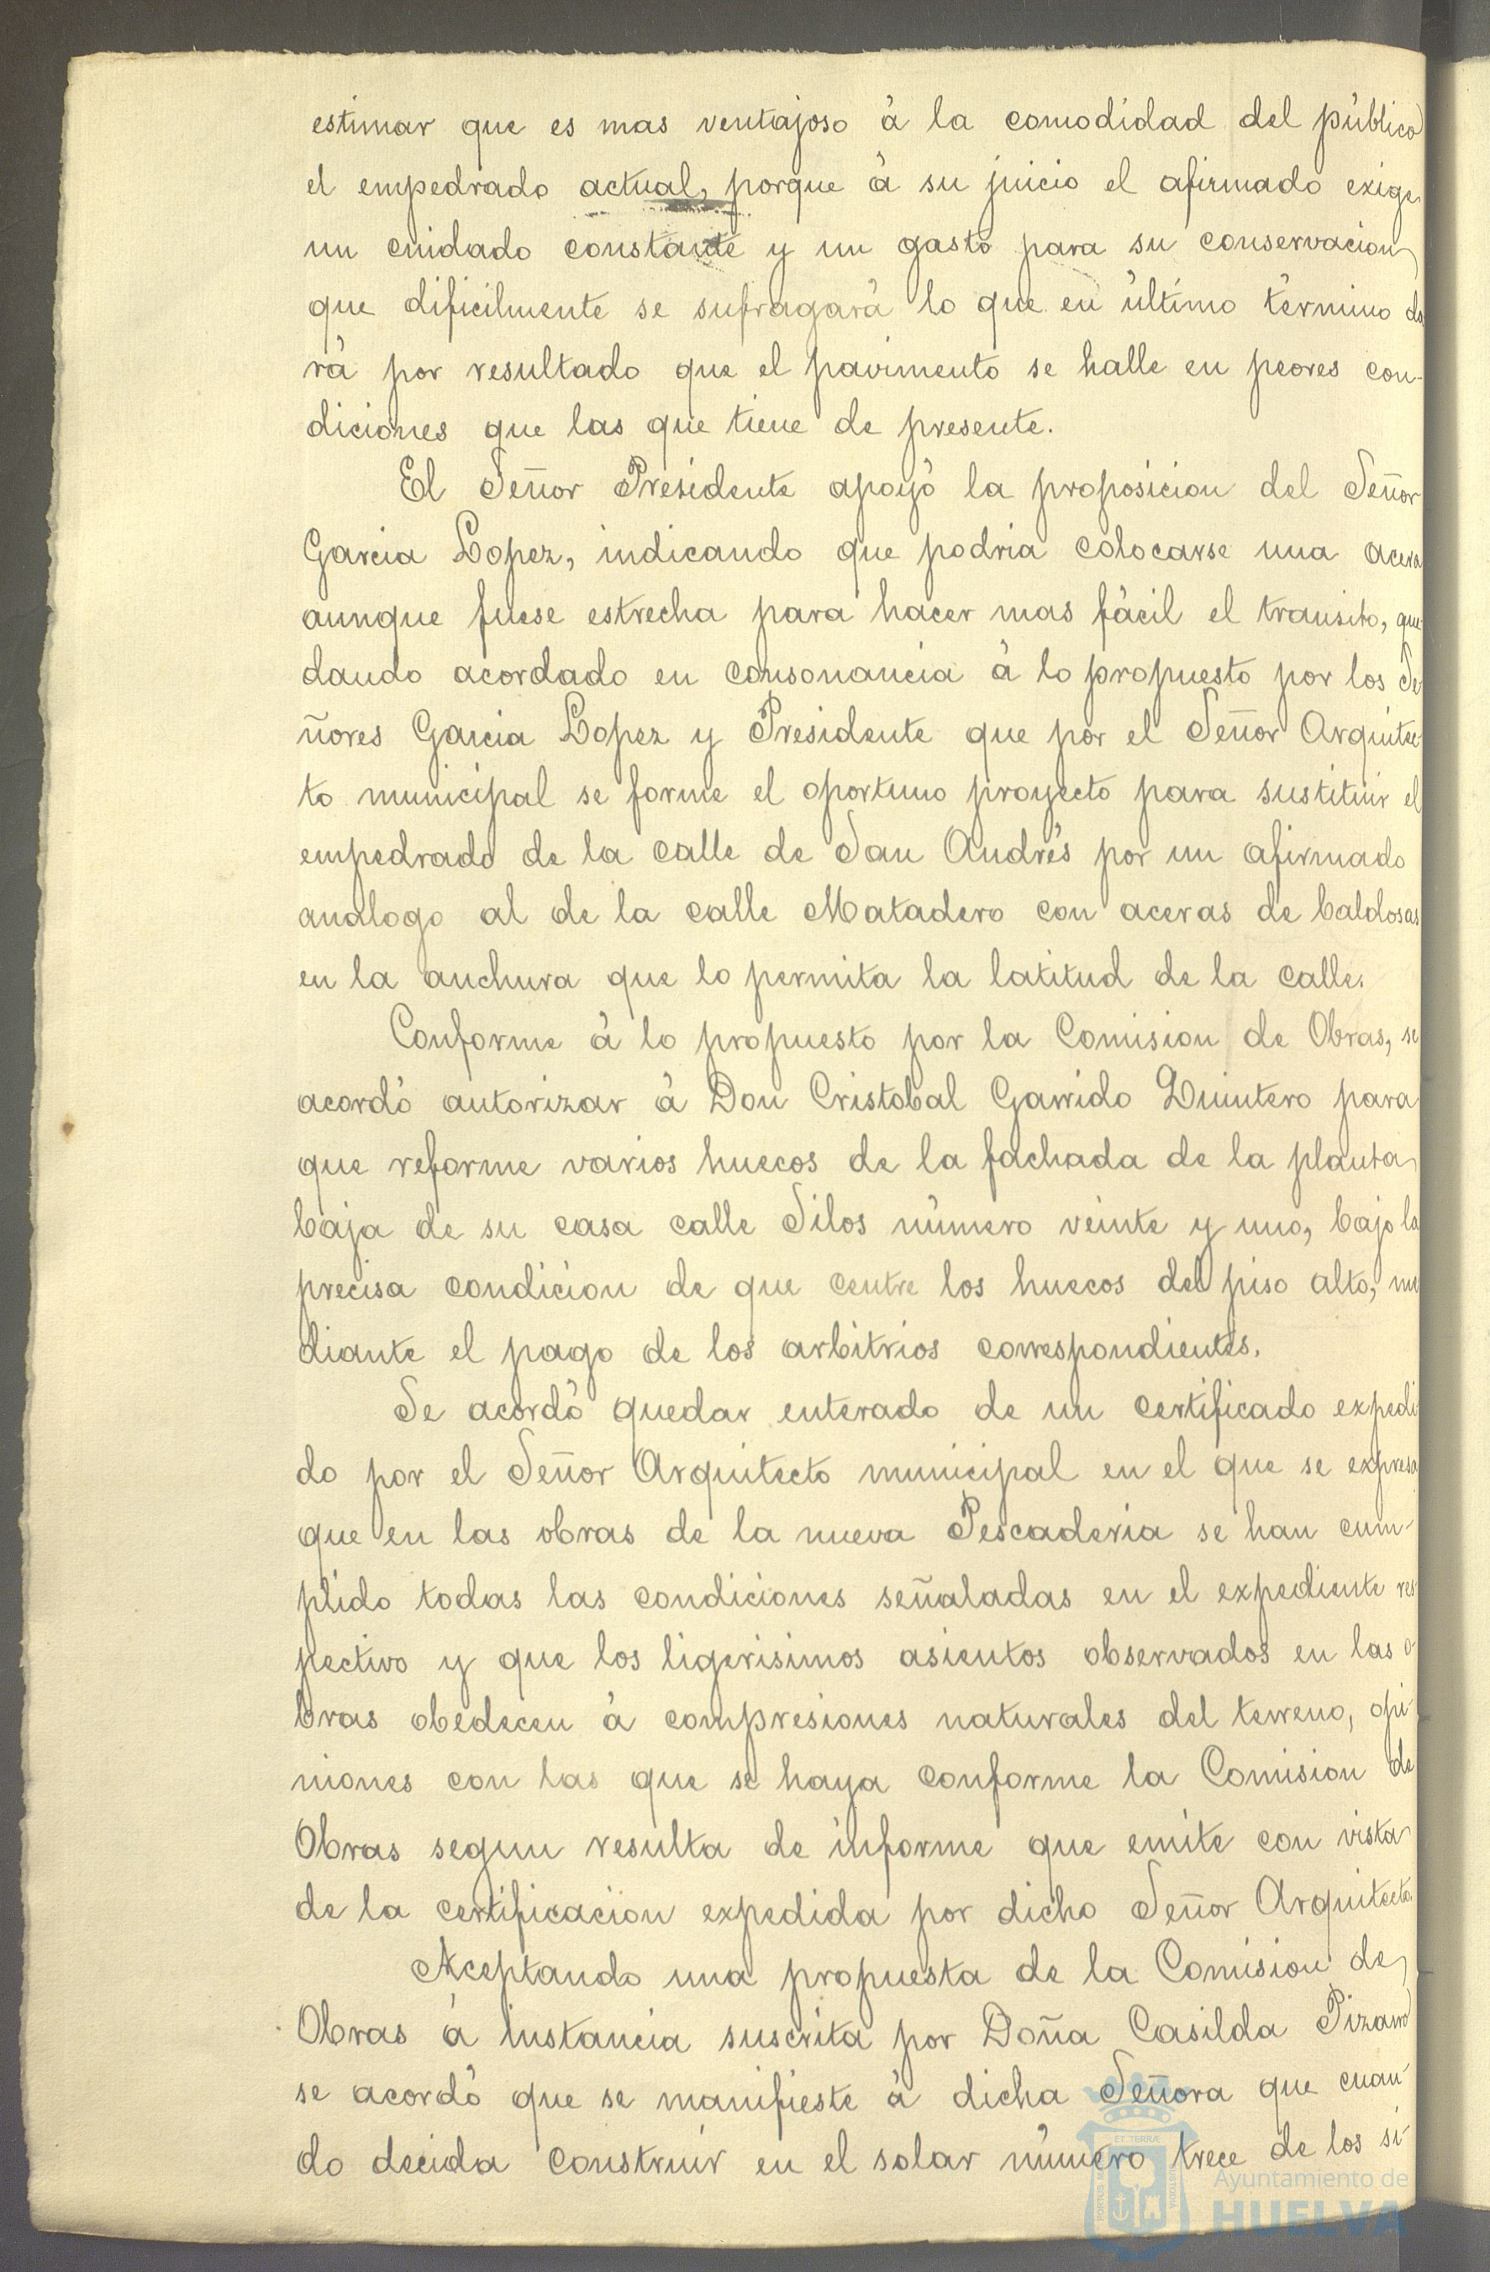 estimar que es mas ventajoso á la comodidad del público
el empedrado actual, porque á su juicio el afirmado exige
un cuidado constante y un gasto para su conservacion
que dificilmente se sufragará lo que en último término da
rá por resultado que el pavimento se halle en peores con-
diciones que las que tiene de presente.
El Señor Presidente apoyó la proposicion del Señor
Garcia Lopez, indicando que podria colocarse una acera
aunque fuese estrecha para hacer mas fácil el transito, que
dando acordado en consonancia á lo propuesto por los Se
ñores Garcia Lopez y Presidente que por el Señor Arquitec
to municipal se forme el oportuno proyecto para sustituir el
empedrado de la calle de San Andrés por un afirmado
analogo al de la calle Matadero con aceras de baldosas
en la anchura que lo permita la latitud de la calle.
Conforme á lo propuesto por la Comision de Obras, se
acordó autorizar á Don Cristobal Garrido Quintero para
que reforme varios huecos de la fachada de la planta
baja de su casa calle Silos número veinte y uno, bajo la
precisa condicion de que centre los huecos del piso alto, me
diante el pago de los arbitrios correspondientes.
Se acordó quedar enterado de un certificado expedi
do por el Señor Arquitecto municipal en el que se expresa
que en las obras de la nueva Pescaderia se han cum-
plido todas las condiciones señaladas en el expediente res
pectivo y que los ligerisimos asientos observados en las o
bras obedecen á compresiones naturales del terreno, opi-
niones con las que se haya conforme la Comision de
Obras segun resulta de informe que emite con vista
de la certificacion expedida por dicho Señor Arquitecto.
Aceptando una propuesta de la Comision de
Obras á instancia suscrita por Doña Casilda Pizarro
se acordó que se manifieste á dicha Señora que cuan-
do decida construir en el solar número trece de los si-
Ayuntamiento de
HUELVA